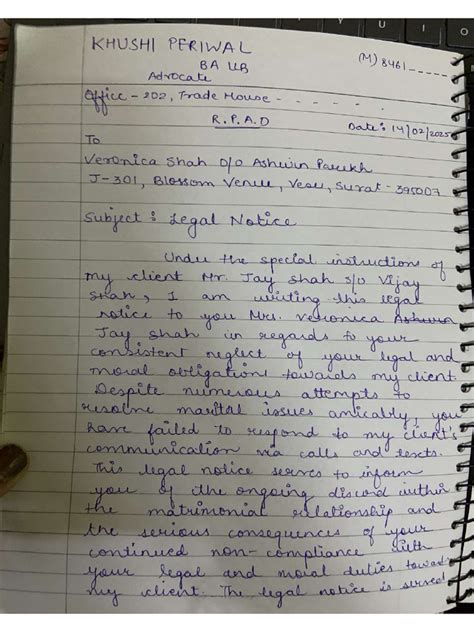 KHUSHI PERIWAL
BA LLB
(M) 8461 _ _ _ _ _
Advocate
Office - 202, Trade House - - - - - - -
R.P.A.D
Date: 14/02/2025
To
Veronica Shah D/O Ashwin Parekh
J-301, Blossom Venue, Vesu, Surat - 395007
Subject : Legal Notice
Under the special instructions of
my client Mr. Jay Shah S/O Vijay
Shah, I am writing this legal
notice to you Mrs. Veronica Ashwin
Jay Shah in regards to your
consistent neglect of your legal and
moral obligations towards my client.
Despite numerous attempts to
resolve marital issues amicably, you
have failed to respond to my client's
communication via calls and texts.
This legal notice serves to inform
you of the ongoing discord within
the matrimonial relationship and
the serious consequences of your
continued non-compliance with
your legal and moral duties toward
my client. The legal notice is served